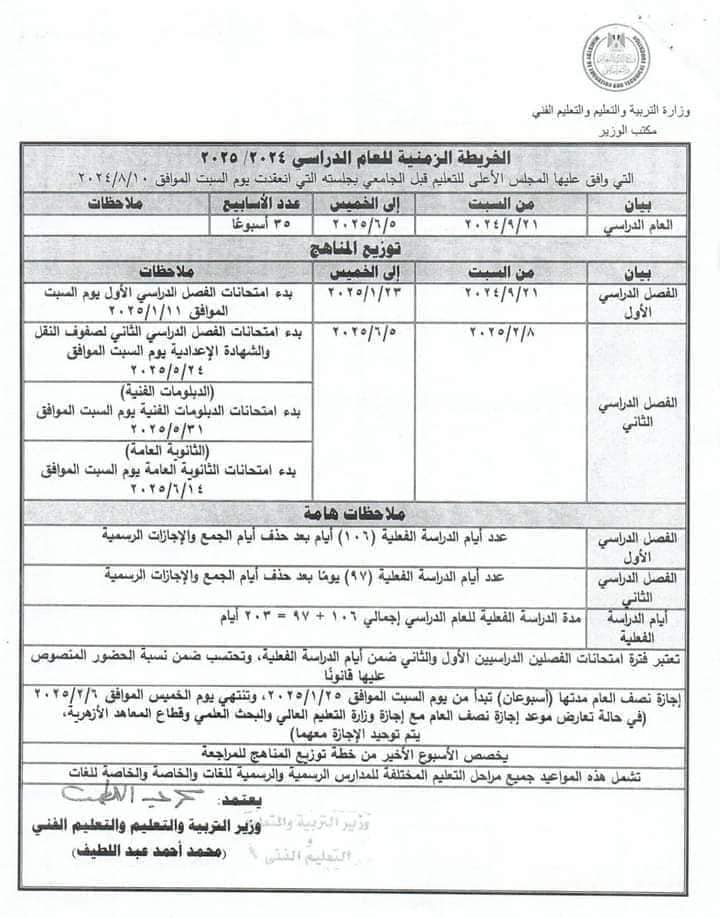 وزارة التربية والتعليم والتعليم الفني
مكتب الوزير
الخريطة الزمنية للعام الدراسي ٢٠٢٤/ ٢٠٢٥
التي وافق عليها المجلس الأعلى للتعليم قبل الجامعي بجلسته التي انعقدت يوم السبت الموافق ٢٠٢٤/٨/١٠
بيان من السبت إلى الخميس عدد الأسابيع ملاحظات
العام الدراسي ٢٠٢٤/٩/٢١ ٢٠٢٥/٦/٥ ٣٥ أسبوعًا
توزيع المناهج
بيان من السبت إلى الخميس ملاحظات
الفصل الدراسي ٢٠٢٤/٩/٢١ ٢٠٢٥/١/٢٣ بدء امتحانات الفصل الدراسي الأول يوم السبت
الأول الموافق ٢٠٢٥/١/١١
٢٠٢٥/٢/٨ ٢٠٢٥/٦/٥ بدء امتحانات الفصل الدراسي الثاني لصفوف النقل
والشهادة الإعدادية يوم السبت الموافق
٢٠٢٥/٥/٢٤
الفصل الدراسي (الدبلومات الفنية)
الثاني بدء امتحانات الدبلومات الفنية يوم السبت الموافق
٢٠٢٥/٥/٣١
(الثانوية العامة)
بدء امتحانات الثانوية العامة يوم السبت الموافق
٢٠٢٥/٦/١٤
ملاحظات هامة
الفصل الدراسي عدد أيام الدراسة الفعلية (١٠٦) أيام بعد حذف أيام الجمع والإجازات الرسمية
الأول
الفصل الدراسي عدد أيام الدراسة الفعلية (٩٧) يومًا بعد حذف أيام الجمع والإجازات الرسمية
الثاني
أيام الدراسة مدة الدراسة الفعلية للعام الدراسي إجمالي ١٠٦ + ٩٧ = ٢٠٣ أيام
الفعلية
تعتبر فترة امتحانات الفصلين الدراسيين الأول والثاني ضمن أيام الدراسة الفعلية، وتحتسب ضمن نسبة الحضور المنصوص
عليها قانونًا
إجازة نصف العام مدتها (أسبوعان) تبدأ من يوم السبت الموافق ٢٠٢٥/١/٢٥، وتنتهي يوم الخميس الموافق ٢٠٢٥/٢/٦
(في حالة تعارض موعد إجازة نصف العام مع إجازة وزارة التعليم العالي والبحث العلمي وقطاع المعاهد الأزهرية،
يتم توحيد الإجازة معهما)
يخصص الأسبوع الأخير من خطة توزيع المناهج للمراجعة
تشمل هذه المواعيد جميع مراحل التعليم المختلفة للمدارس الرسمية والرسمية للغات والخاصة والخاصة للغات
يعتمد:
وزير التربية والتعليم والتعليم الفني
(محمد أحمد عبد اللطيف)
وزير التربية والتعليم
و
التعليم الفني